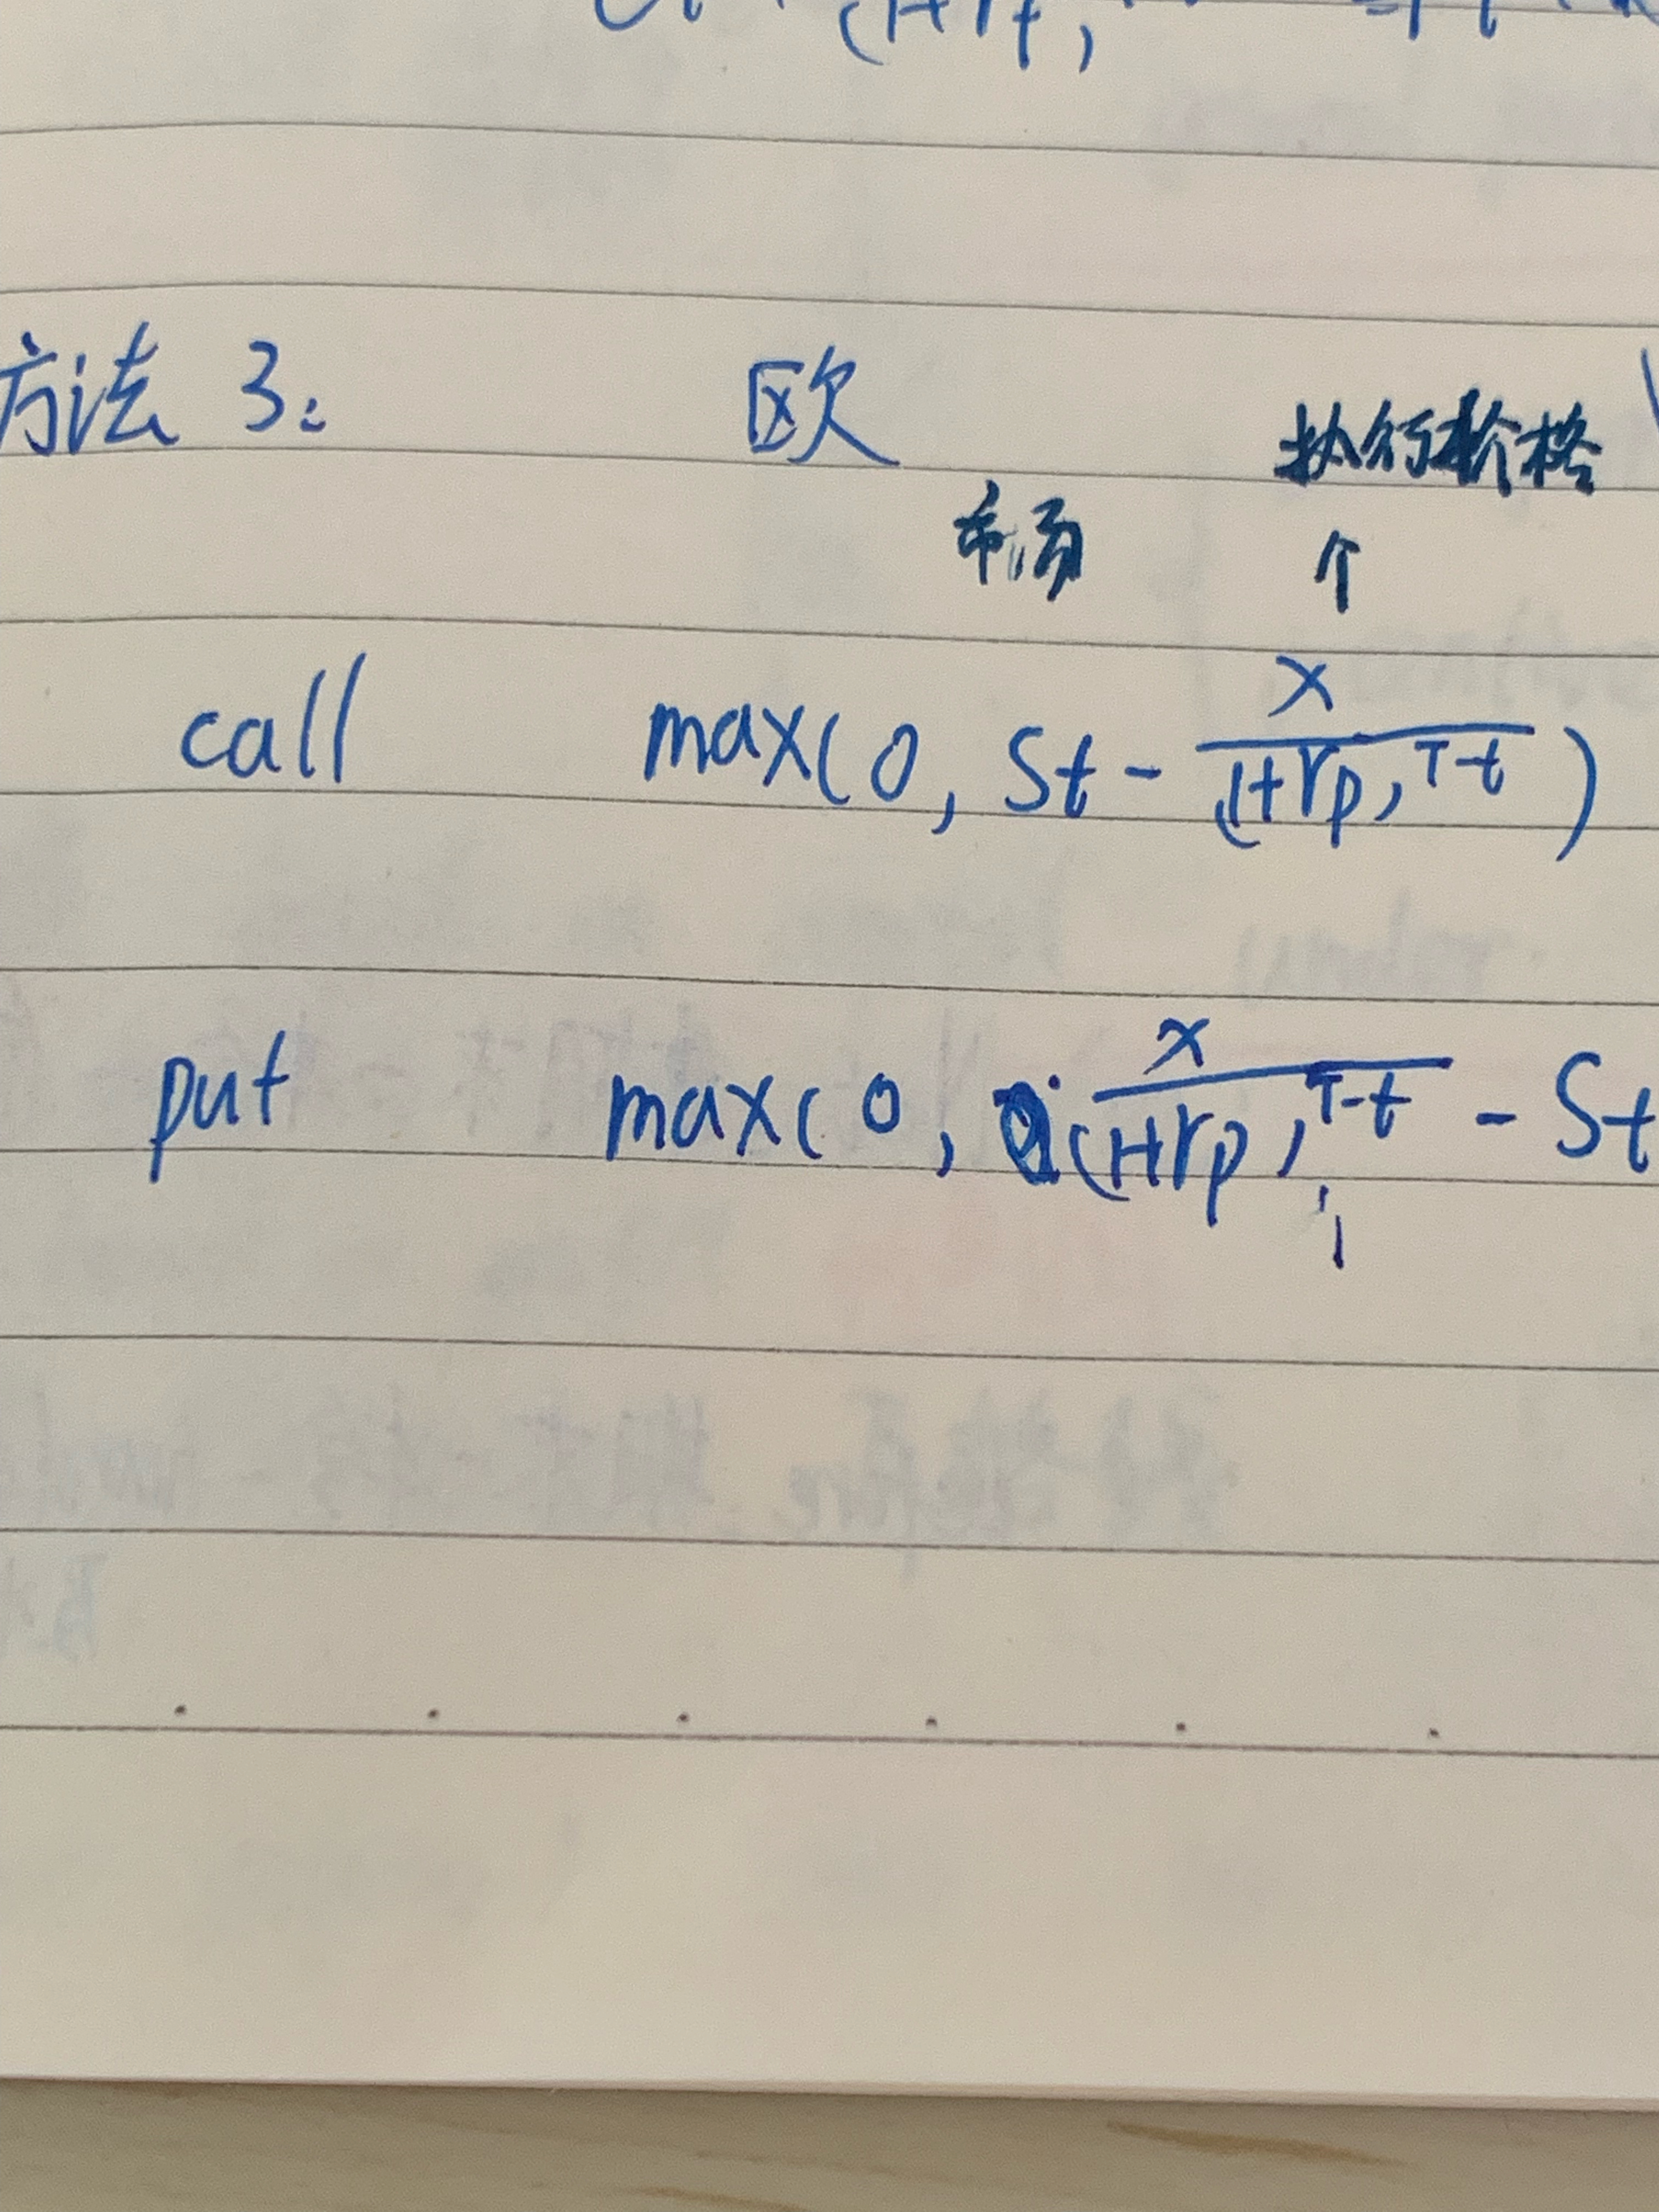 方法 3: 欧 执行价格
市场 个
call max(0, St - X/(1+rp)^T-t)
put max(0, X/(1+rp)^T-t - St